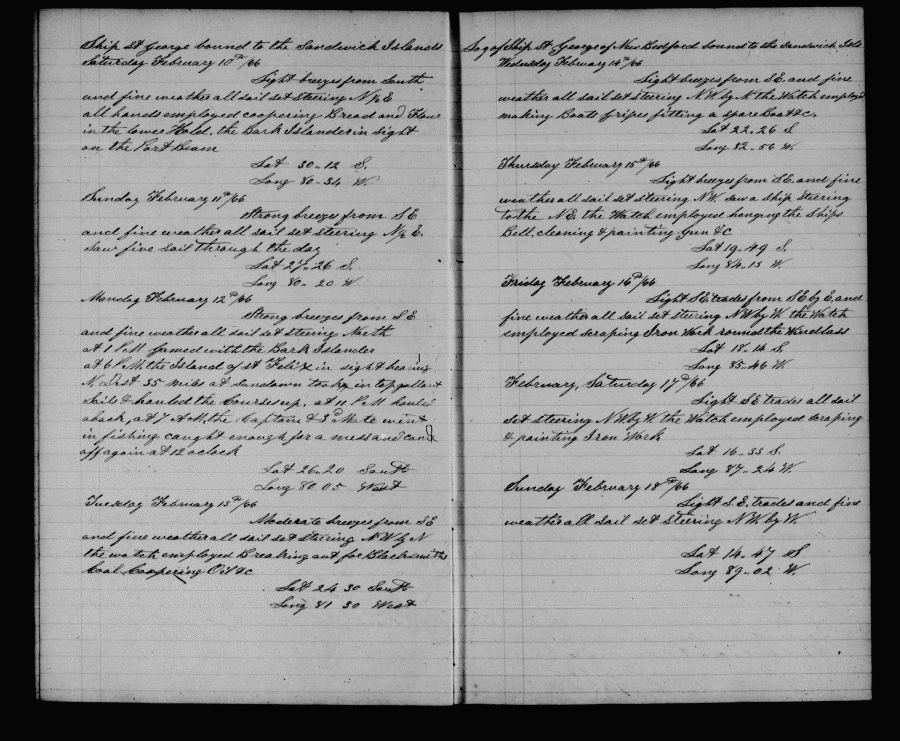 Ship St George bound to the Sandwich Islands
Saturday February 10th/66
Light breezes from South
and fine weather all sail set Steering N½E
all hands employed coopering Bread and Flour
in the lower Hold, the Bark Islander in sight
on the Port Beam
Lat 30-12 S.
Long 80-34 W.
Sunday February 11th/66
Strong breezes from SE
and fine weather all sail set steering N½E.
Saw five sail through the day
Lat 27-26 S.
Long 80-20 W
Monday February 12th/66
Strong breezes from SE
and fine weather all sail set steering North
at 1 P.M. gamed with the Bark Islander
at 6 P.M. the Island of St Felix in sight bearing
N. Dist 35 miles at sundown took in topgallant
Sails & hauled the Courses up, at 11 P.M. hauld
aback, at 7 A.M. the Captain & 3d Mate went
in fishing caught enough for a mess and came
off again at 12 oclock
Lat 26-20 South
Long 80 05 West
Tuesday February 13th/66
Moderate breezes from SE
and fine weather all sail set steering NW by N
the watch employed Breaking out for Blacksmiths
Coal Coopering Oil &c
Lat 24 30 South
Long 81 30 West
Log of Ship St George of New Bedford bound to the Sandwich Isds
Wednesday February 14th/66
Light breezes from SE and fine
weather all sail set steering N.W. by N. the Watch employed
making Boats gripes fitting a spare Boat &c.
Lat 22-26 S
Long 82-56 W.
Thursday February 15th/66
Light breezes from S.E. and fine
weather all sail set steering N.W. saw a Ship Steering
to the N.E. the Watch employed hanging the Ships
Bell, cleaning & painting Gun &c
Lat 19-49 S.
Long 84-13 W.
Friday February 16th/66
Light SE trades from SE by E, and
fine weather all sail set steering NW by W. the Watch
employed scraping Iron Work round the Windlass
Lat 18-14 S.
Long 85-46 W.
February, Saturday 17th/66
Light SE trades all sail
set steering NW by W. the Watch employed scraping
& painting Iron Work
Lat 16-33 S.
Long 87-24 W
Sunday February 18th/66
Light S.E. trades and fine
weather all sail set steering N.W. by W.
Lat 14-47 S
Long 89-02 W.